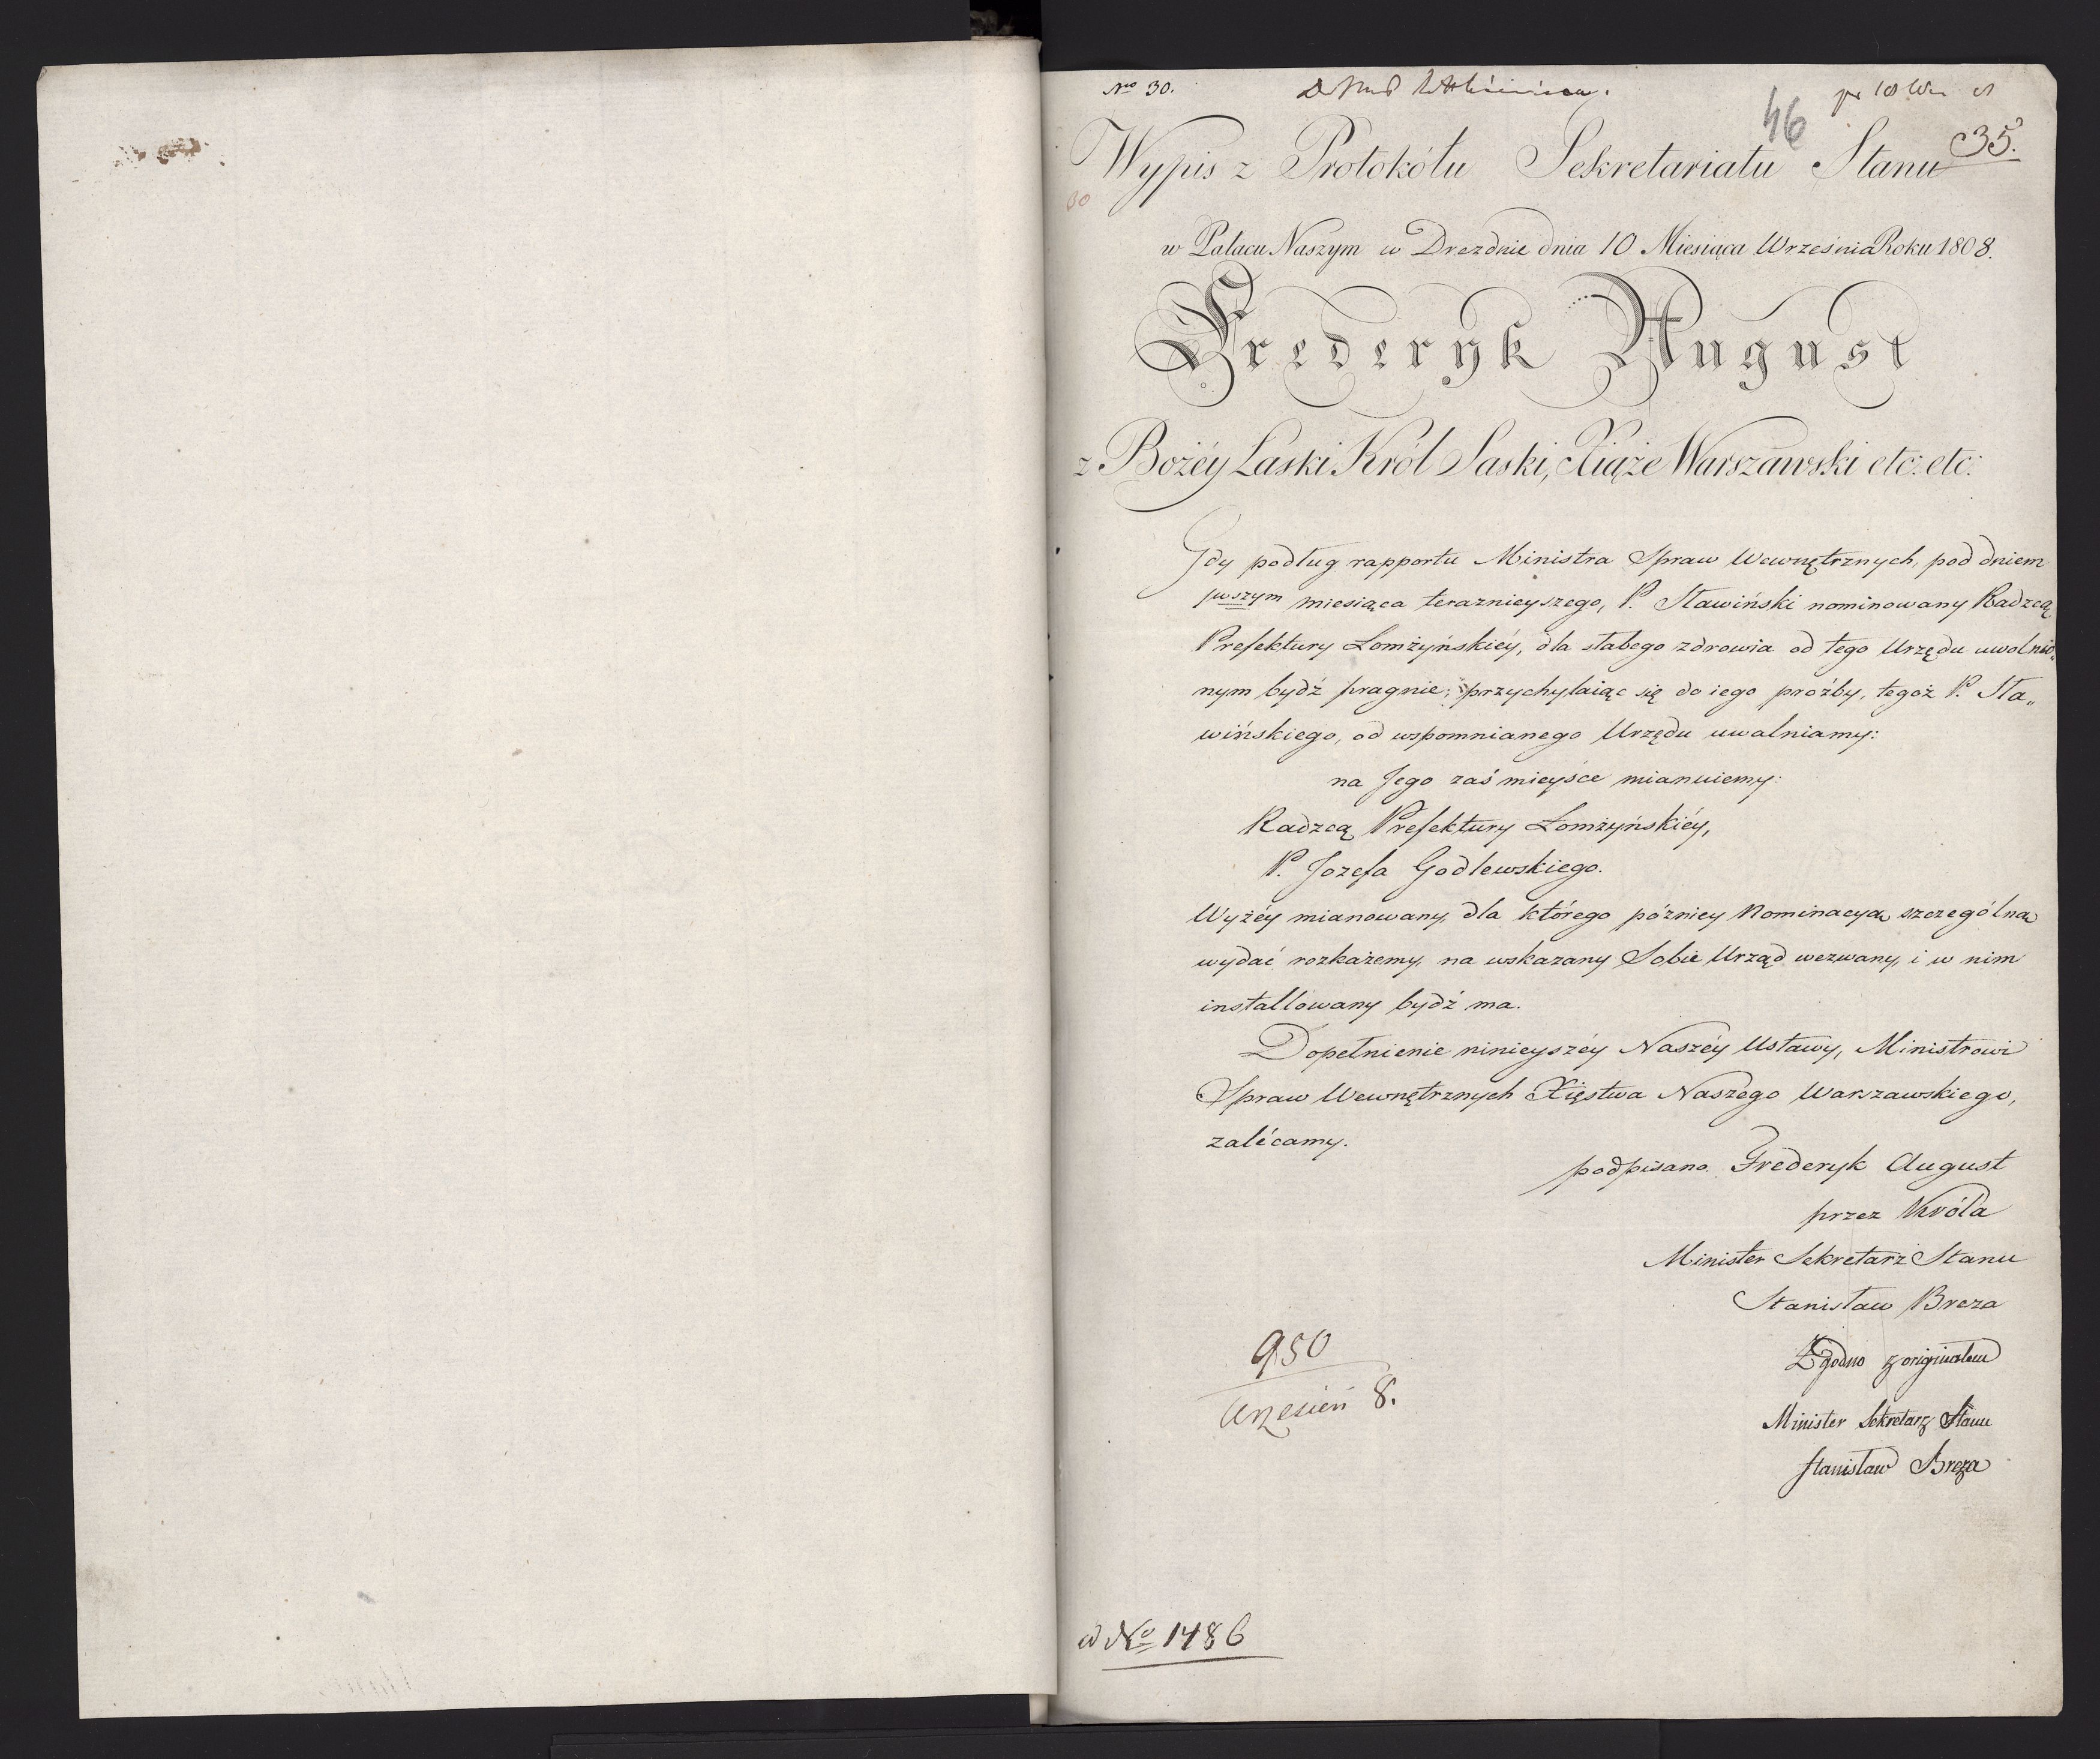 Nro 30.
46
35.
Wypis z Protokółu Sekretariatu Stanu
30
w Pałacu Naszym w Dreznie dnia 10 Miesiąca Września Roku 1808.
Frederyk August
z Bożéy Łaski Król Saski, Xiąże Warszawski etc: etc:
Gdy podług rapportu Ministra Spraw Wewnętrznych, pod dniem
pwszym miesiąca teraznieyszego, P. Sławiński nominowany Radzcą
Prefektury Łomżyńskiéy, dla słabego zdrowia od tego Urzędu uwolnio„
nym bydź pragnie; przychylaiąc się do iego proźby, tegoż P. Sła„
wińskiego, od wspomnianego Urzędu uwalniamy:
na Jego zaś mieysce mianuiemy:
Radzcą Prefektury Łomżyńskiéy,
P. Jozefa Godlewskiego.
Wyżéy mianowany, dla którego pózniey Nominacya szczególna
wydać rozkażemy, na wskazany Sobie Urząd wezwany, i w nim
installowany bydź ma.
Dopełnienie ninieyszéy Naszéy Ustawy, Ministrowi
Spraw Wewnętrznych Xięstwa Naszego Warszawskiego,
zalécamy.
podpisano Frederyk August
przez Króla
Minister Sekretarz Stanu
Stanisław Breza
Zgodno z originałem
Minister Sekretarz Stanu
Stanisław Breza
950
Wrzesień 8.
ad No 1486